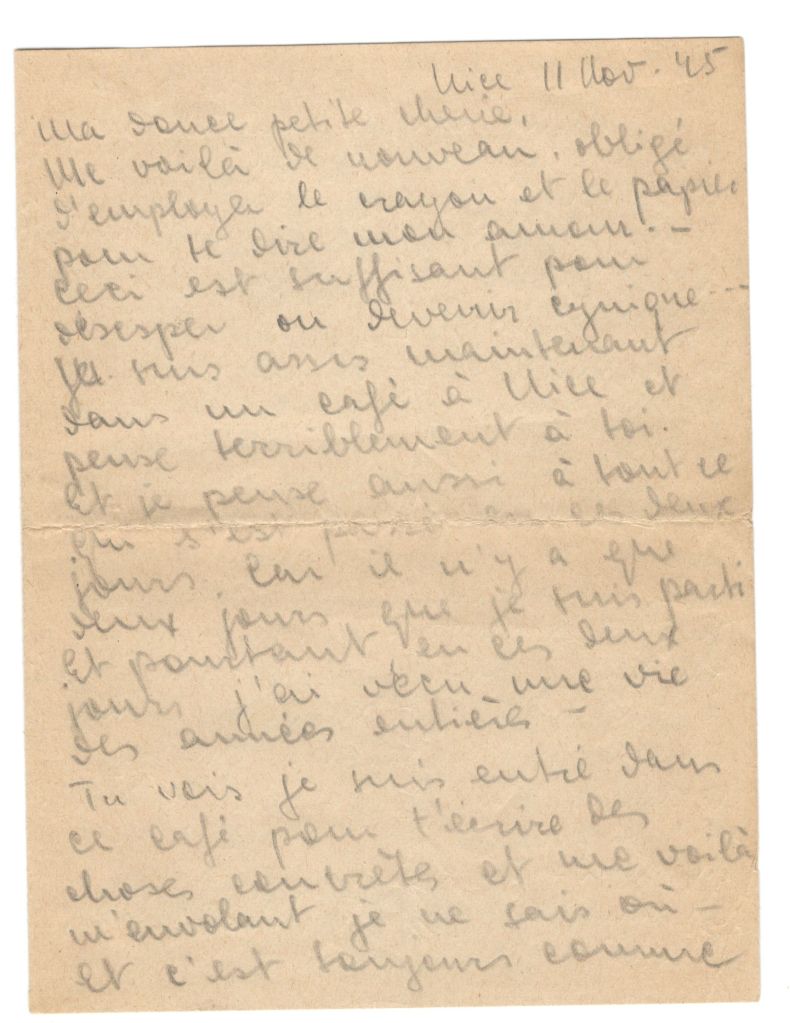 Nice 11 Nov. 45
Ma douce petite cherie,
Me voilà de nouveau, obligé
d'employer le crayon et le papier
pour te dire mon amour. –
ceci est suffisant pour
désesper ou devenir cynique...
Je suis assis maintenant
dans un café à Nice et
pense terriblement à toi.
Et je pense aussi à tout ce
qui s'est passé en ces deux
jours. Car il n'y a que
deux jours que je suis parti
Et pourtant en ces deux
jours j'ai vécu une vie
des années entières –
Tu vois je suis entré dans
ce café pour t'écrire des
choses concrètes et me voilà
m'envolant je ne sais où –
Et c'est toujours comme